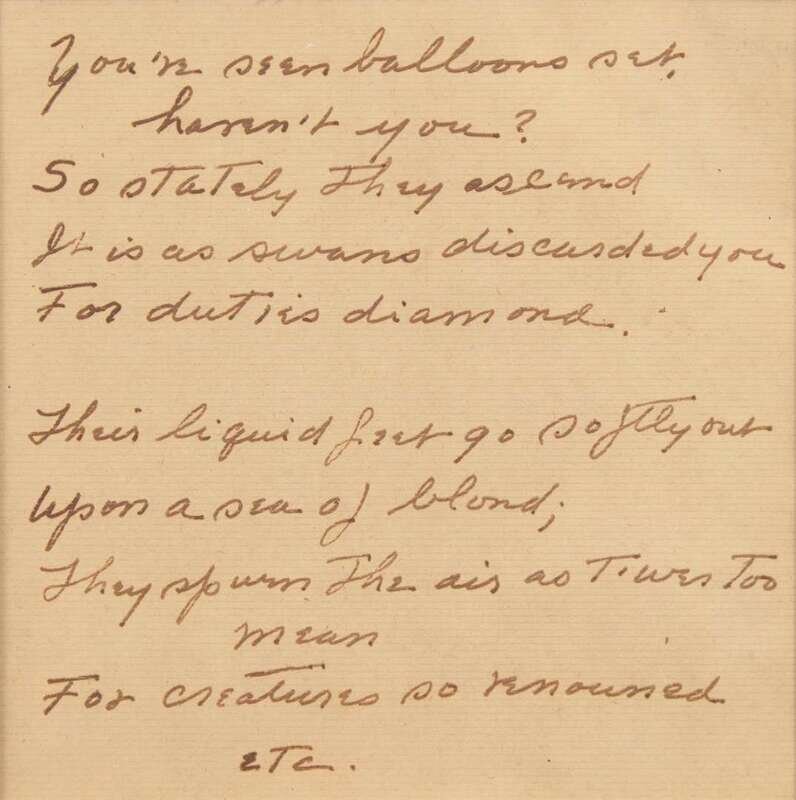 You've seen balloons set,
haven't you?
So stately they ascend
It is as swans discarded you
For duties diamond.
Their liquid feet go softly out
upon a sea of blond;
They spurn the air as t'wer too
mean
For creatures so renouned
etc.